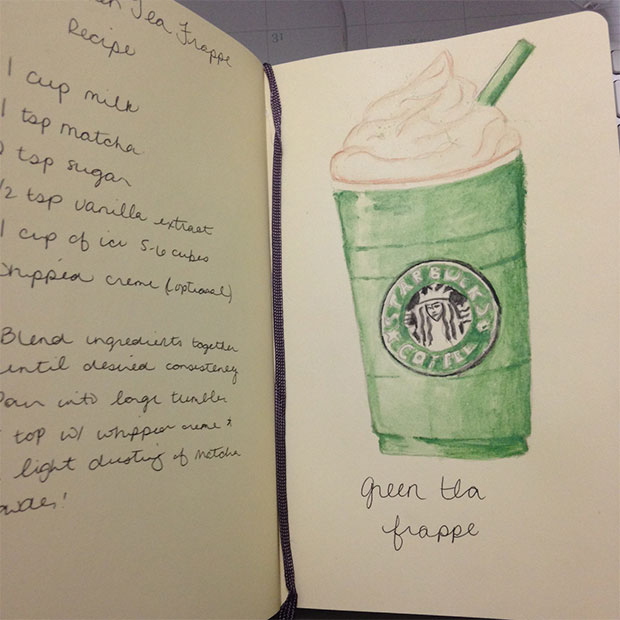 31
en Tea Frappe
Recipe
1 cup milk
1 tsp matcha
tsp sugar
/2 tsp vanilla extract
1 cup of ice 5-6 cubes
whipped creme (optional)
Blend ingredients together
until desired consistency
Pour into large tumbler
top w/ whipped creme +
light dusting of matcha
powder!
STARBUCKS
COFFEE
green tea
frappe